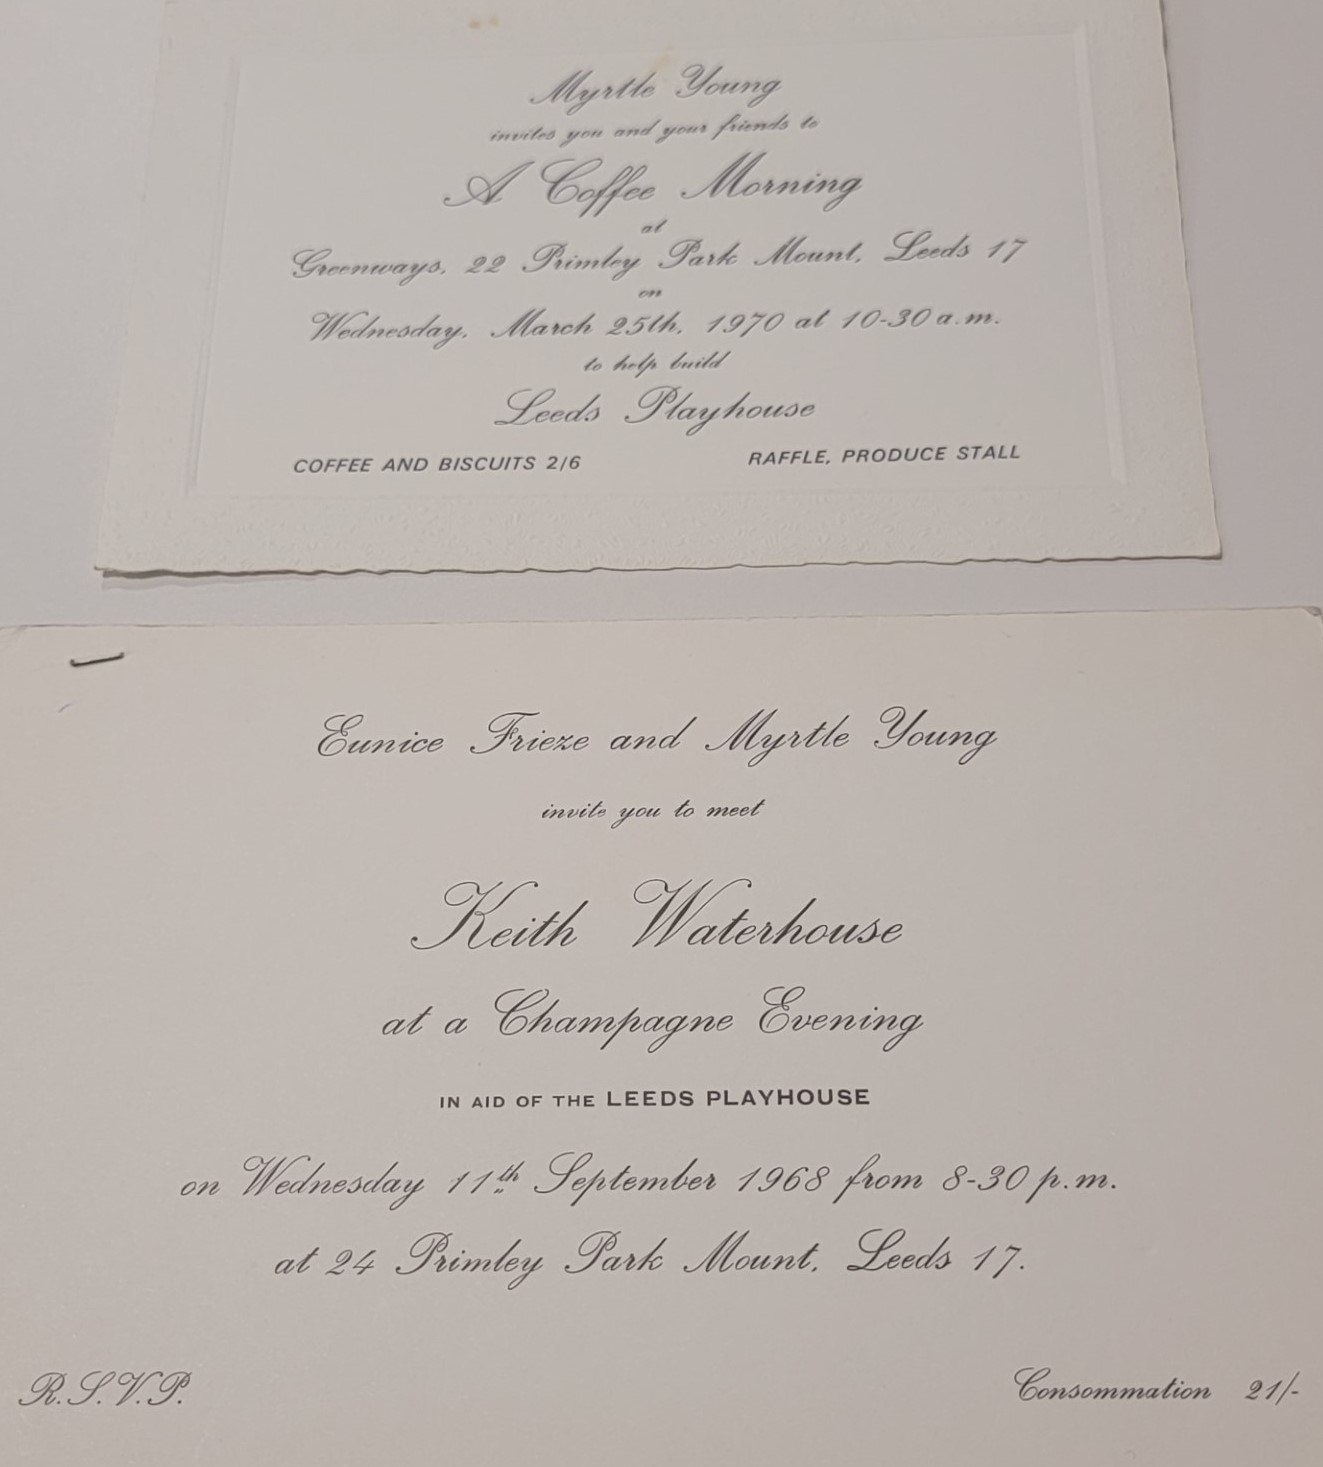 Myrtle Young
invites you and your friends to
A Coffee Morning
at
Greenways, 22 Primley Park Mount, Leeds 17
on
Wednesday, March 25th, 1970 at 10-30 a.m.
to help build
Leeds Playhouse
COFFEE AND BISCUITS 2/6 RAFFLE, PRODUCE STALL
Eunice Frieze and Myrtle Young
invite you to meet
Keith Waterhouse
at a Champagne Evening
IN AID OF THE LEEDS PLAYHOUSE
on Wednesday 11th September 1968 from 8-30 p.m.
at 24 Primley Park Mount, Leeds 17.
R.S.V.P. Consommation 21/-